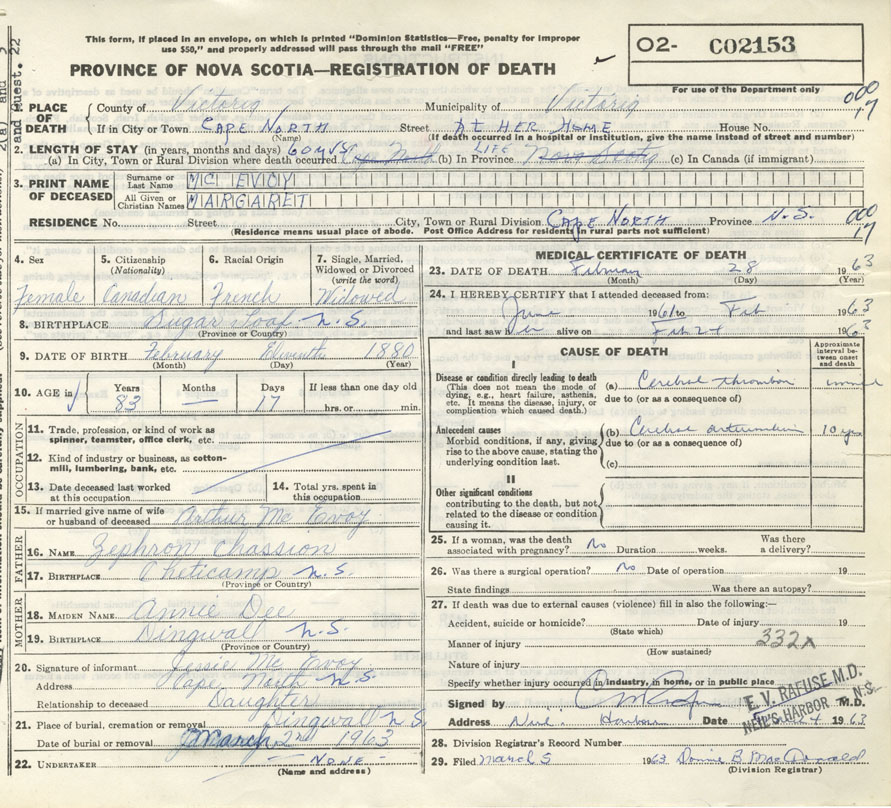 This form, if placed in an envelope, on which is printed "Dominion Statistics—Free, penalty for improper
use $50," and properly addressed will pass through the mail "FREE"
PROVINCE OF NOVA SCOTIA—REGISTRATION OF DEATH
O2- C02153
For use of the Department only
2(a) and
and Quest. 22
1. PLACE OF DEATH
County of Victoria Municipality of Victoria 000
If in City or Town CAPE NORTH Street AT HER HOME House No. 17
(Name) (If death occurred in a hospital or institution, give the name instead of street and number)
2. LENGTH OF STAY (in years, months and days) 60 yrs LIFE
(a) In City, Town or Rural Division where death occurred Cape North (b) In Province Nova Scotia (c) In Canada (if immigrant)
3. PRINT NAME OF DECEASED
Surname or Last Name MC EVOY
All Given or Christian Names MARGARET
RESIDENCE No. Street City, Town or Rural Division CAPE NORTH Province N.S. 000 17
(Residence means usual place of abode. Post Office Address for residents in rural parts not sufficient)
4. Sex Female
5. Citizenship (Nationality) Canadian
6. Racial Origin French
7. Single, Married, Widowed or Divorced (write the word) Widowed
8. BIRTHPLACE Sugar Loaf N.S.
(Province or Country)
9. DATE OF BIRTH February Eleventh 1880
(Month) (Day) (Year)
10. AGE in Years 83 Months — Days 17 If less than one day old
hrs. or min.
OCCUPATION
11. Trade, profession, or kind of work as spinner, teamster, office clerk, etc.
12. Kind of industry or business, as cotton-mill, lumbering, bank, etc.
13. Date deceased last worked at this occupation
14. Total yrs. spent in this occupation
15. If married give name of wife or husband of deceased Arthur Mc Evoy
FATHER
16. NAME Zephron Chassion
17. BIRTHPLACE Cheticamp N.S.
(Province or Country)
MOTHER
18. MAIDEN NAME Annie Dee
19. BIRTHPLACE Dingwall N.S.
(Province or Country)
20. Signature of informant Jessie Mc Evoy
Address Cape North N.S.
Relationship to deceased Daughter
21. Place of burial, cremation or removal Dingwall N.S.
Date of burial or removal March 2nd 1963
22. UNDERTAKER NONE
(Name and address)
MEDICAL CERTIFICATE OF DEATH
23. DATE OF DEATH February 28 1963
(Month) (Day) (Year)
24. I HEREBY CERTIFY that I attended deceased from:
June 1961 to Feb 1963
and last saw her alive on Feb 24 1963
CAUSE OF DEATH
Approximate interval between onset and death
I
Disease or condition directly leading to death
(This does not mean the mode of dying, e.g., heart failure, asthenia, etc. It means the disease, injury, or complication which caused death.)
(a) Cerebral thrombosis
due to (or as a consequence of)
Antecedent causes
Morbid conditions, if any, giving rise to the above cause, stating the underlying condition last.
(b) Cerebral 10 yrs
due to (or as a consequence of)
(c)
II
Other significant conditions
contributing to the death, but not related to the disease or condition causing it.
25. If a woman, was the death associated with pregnancy? No Duration weeks. Was there a delivery?
26. Was there a surgical operation? No Date of operation 19
State findings Was there an autopsy?
27. If death was due to external causes (violence) fill in also the following:—
Accident, suicide or homicide? Date of injury 19
(State which)
Manner of injury 332X
(How sustained)
Nature of injury
Specify whether injury occurred in industry, in home, or in public place
Signed by M.D.
E. V. RAFUSE M.D.
NEIL'S HARBOR N.S.
Address Neil's Harbour Date 1963
28. Division Registrar's Record Number
29. Filed March 5 1963 Donnie B MacDonald
(Division Registrar)